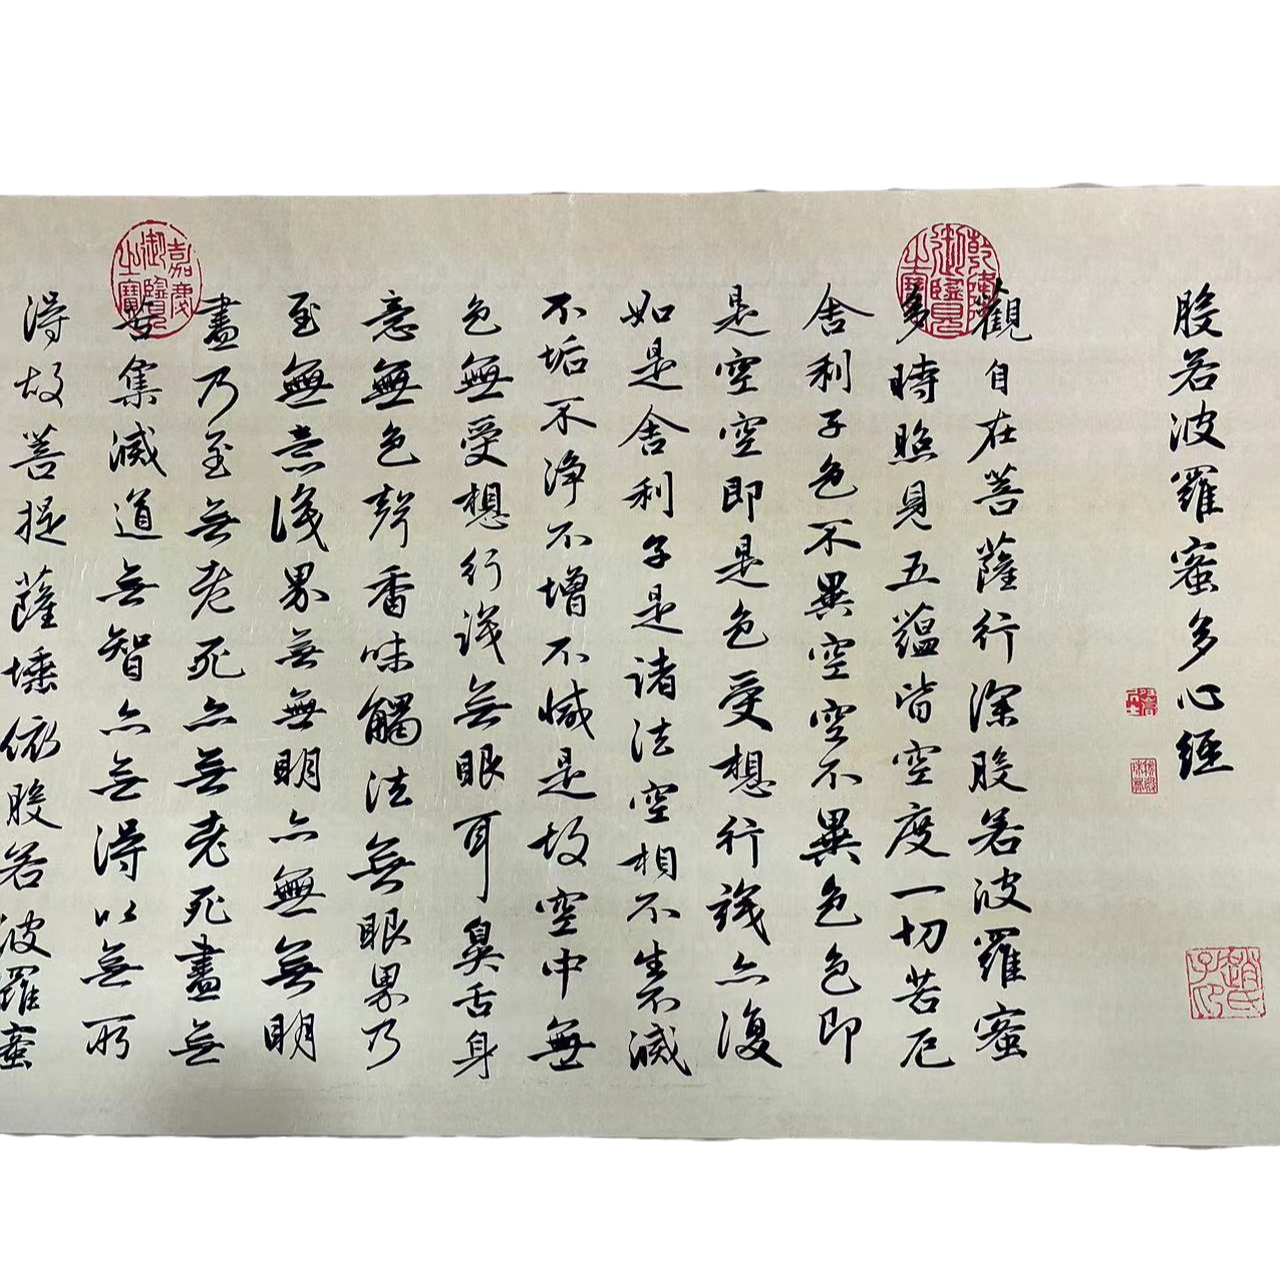 般若波羅蜜多心經
觀自在菩薩行深般若波羅蜜
多時照見五蘊皆空度一切苦厄
舍利子色不異空空不異色色即
是空空即是色受想行識亦復
如是舍利子是諸法空相不生不滅
不垢不淨不增不減是故空中無
色無受想行識無眼耳鼻舌身
意無色聲香味觸法無眼界乃
至無意識界無無明亦無無明
盡乃至無老死亦無老死盡無
苦集滅道無智亦無得以無所
得故菩提薩埵依般若波羅蜜
乾隆御覽之寶
嘉慶御覽之寶
趙氏子印